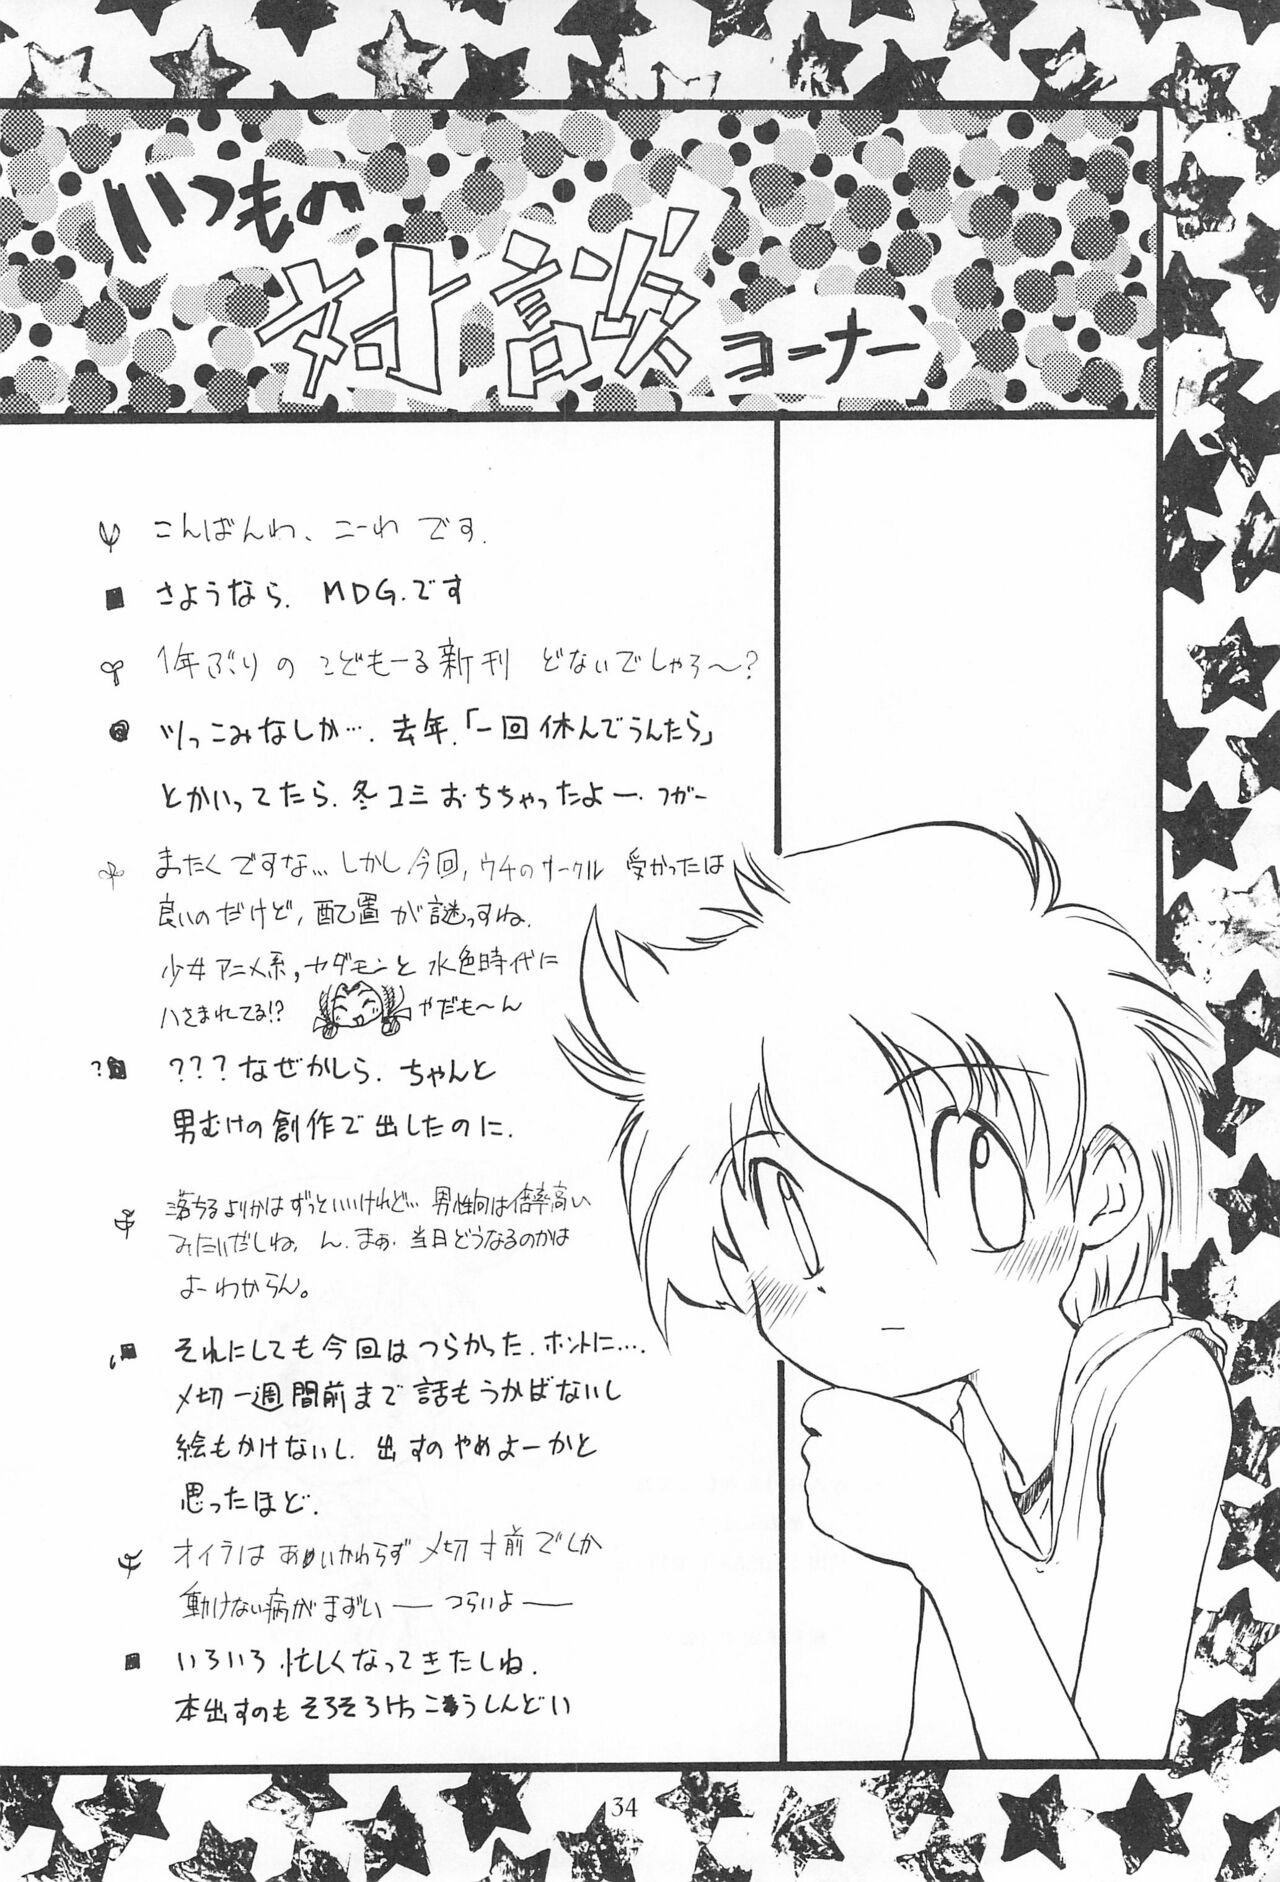 いつもの
対談
コーナー
こんばんわ、ニーわ です.
さようなら. MDG.です
1年ぶりの こどもーる新刊 どないでしゃろ〜?
ツっこみなしか…. 去年.「一回休んでうんたら」
とかいってたら. 冬コミおちちゃったよー. フガー
まったくですな… しかし今回, ウチのサークル 受かったは
良いのだけど, 配置が謎っすね.
少女アニメ系, カダモンと 水色時代に
ハさまれてる!?
やだも〜ん
???なぜかしら. ちゃんと
男むけの創作で出したのに.
落ちるよりかはずっといいけれど… 男性向は倍率高い
みたいだしね. ん. まぁ. 当日どうなるのかは
よーわからん。
それにしても今回はつらかった. ホントに….
〆切一週間前まで話もうかばないし
絵もかけないし. 出すのやめよーかと
思ったほど.
オイラは あいかわらず〆切寸前でしか
動けない病がまずい── つらいよ──
いろいろ忙しくなってきたしね.
本出すのもそろそろけっこうしんどい
34